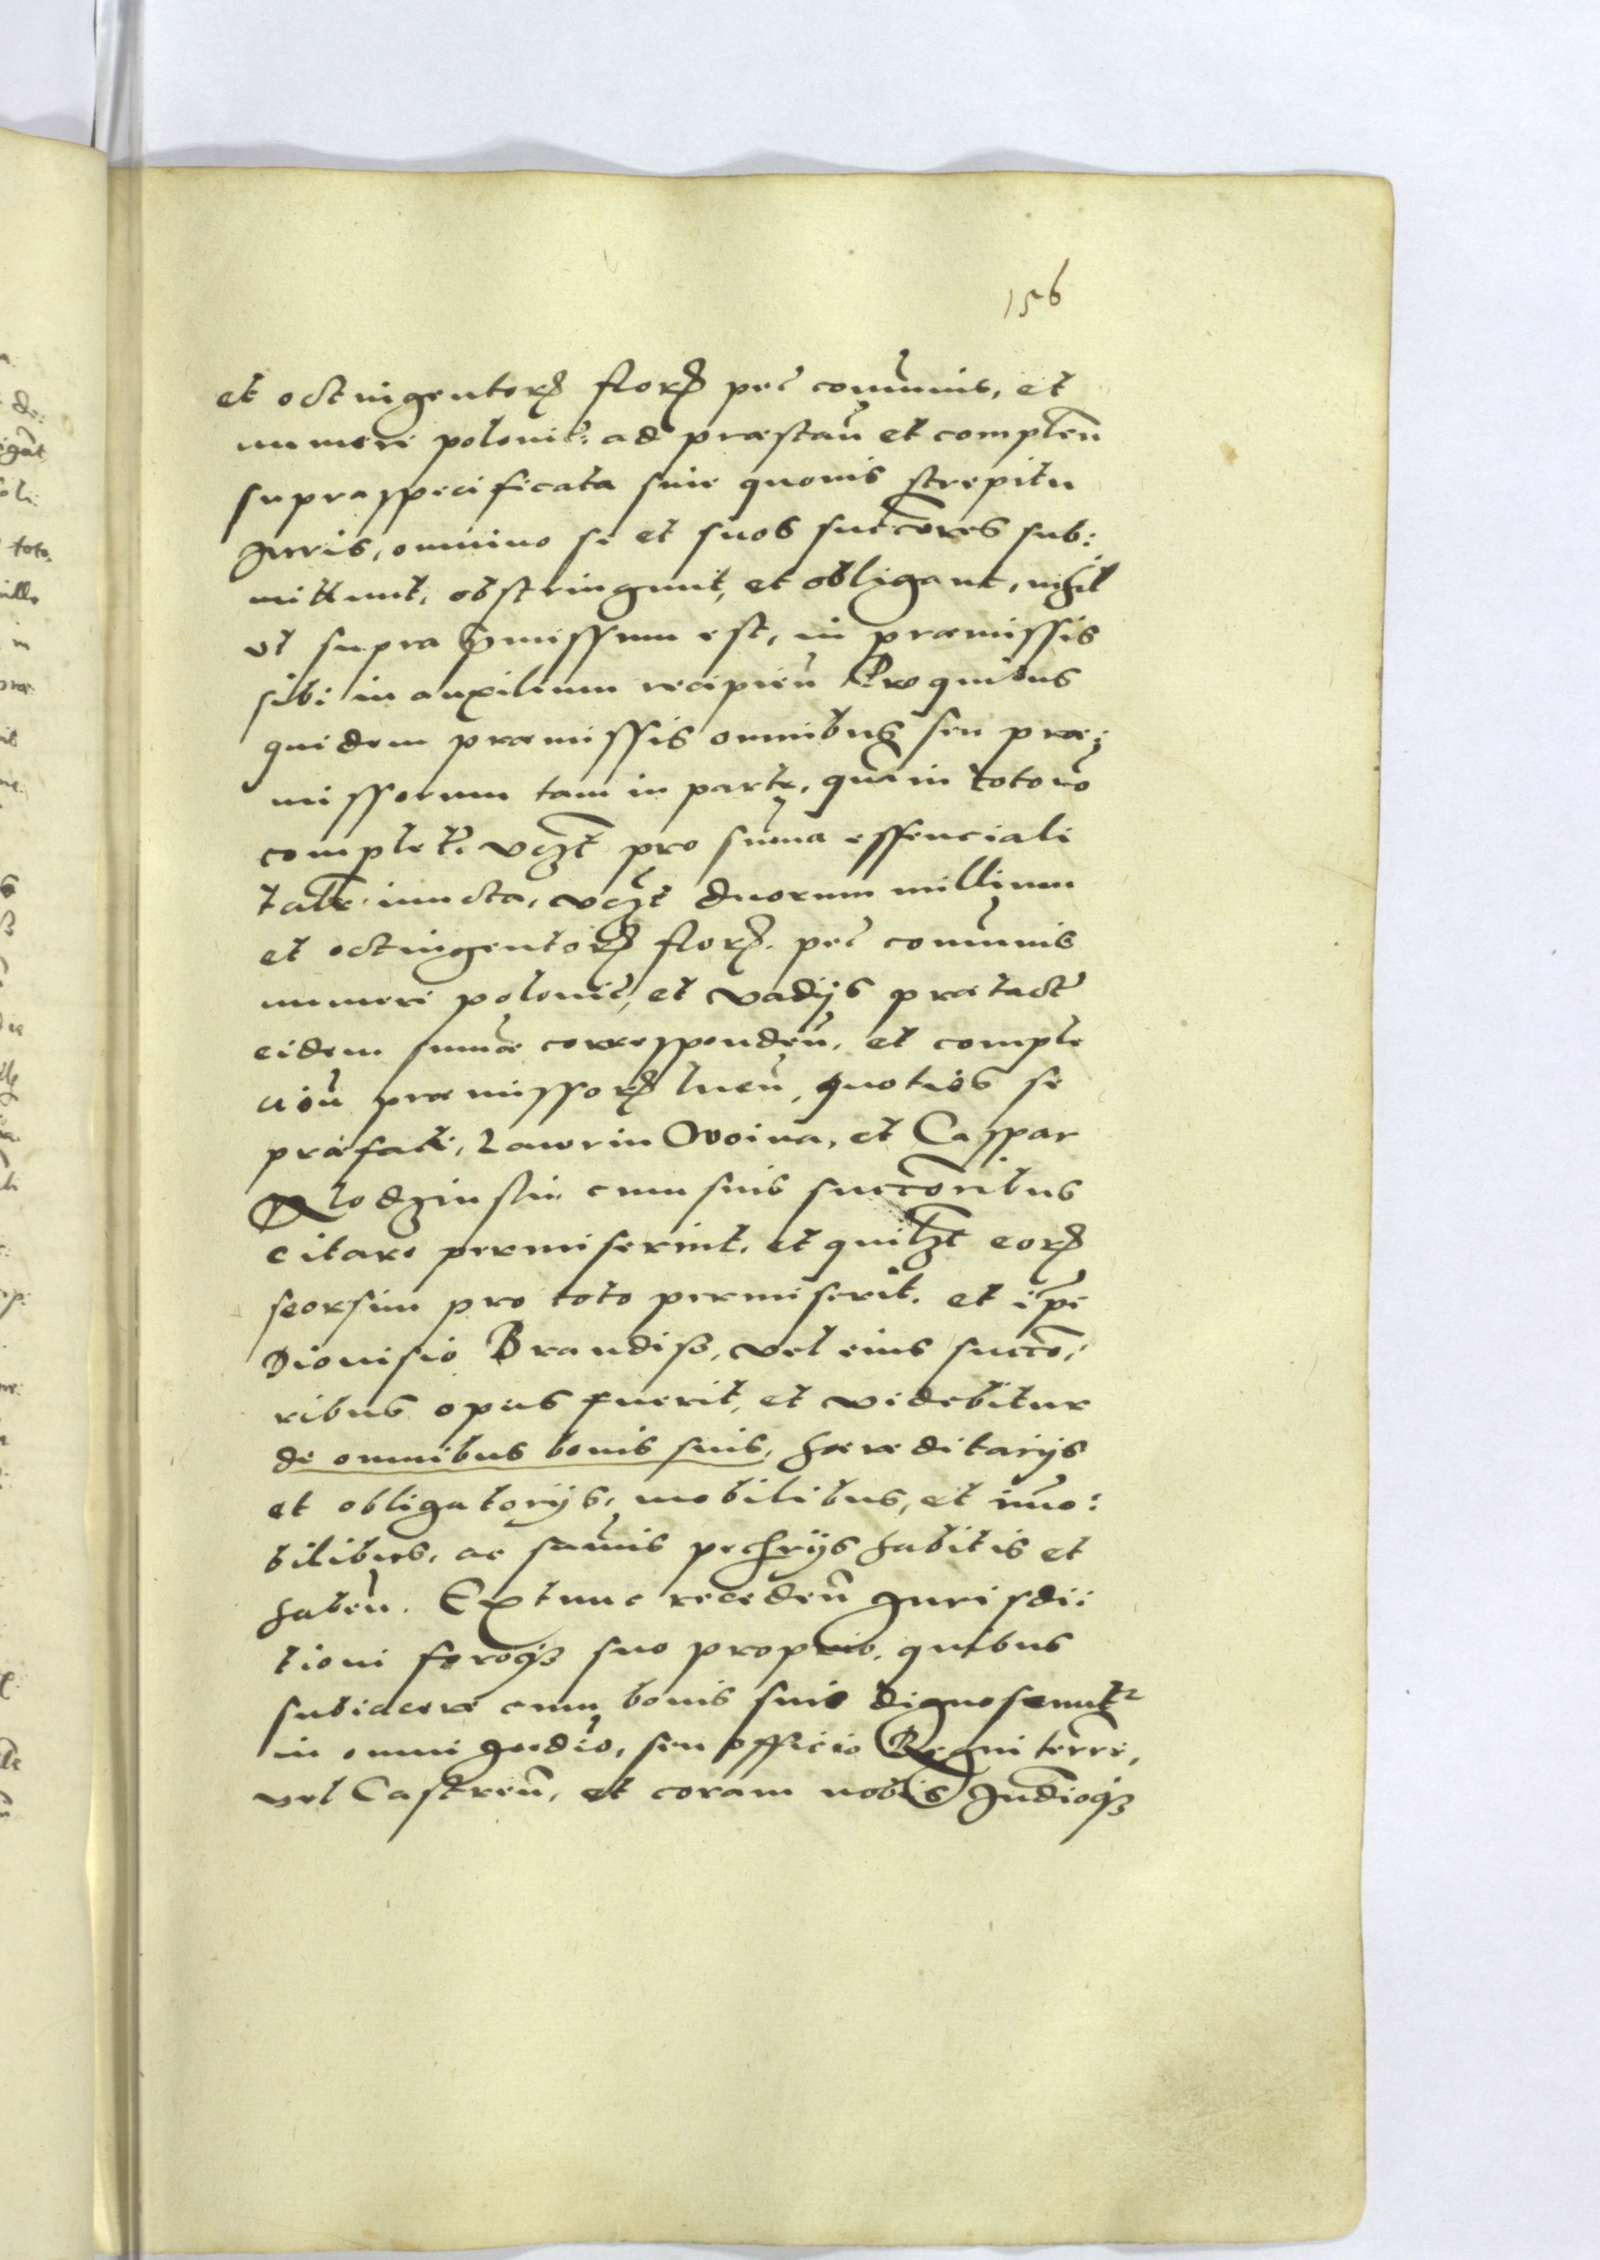 156
et octingentorꝝ florꝝ pec̃ com̃unis, et
numeri polonic̃: ad præstan̄ et complen̄
supraspecificata sine quovis strepitu
Iuris, omnino se et suos succ̃ores sub:
mittunt, obstringunt, et obligant, nihil
vt supra p̃missum est, in præmissis
sibi in auxilium recipien̄ Pro quibus
quidem præmissis omnibus seu præ:
missorum tam in parte, quã in toto nõ
complet̃. vcꝫt pro sum̃a essenciali
iuncta, vcꝫt duorum millium
et octingentorꝝ florꝝ. pec̃ com̃unis
numeri polonic̃, et vadijs prætact̃
eidem sum̃æ corresponden̄, et comple
præmissorꝝ luen̄, quoties se
præfati, Lawrin Woina, et Caspar
cum suis succ̃oribus
citare permiserint, et quilꝫt eorꝝ
seorsim pro toto permiserit. et ip̃i
Dionisio Brandisz, vel eius succo:
ribus opus fuerit, et videbitur
de omnibus bonis suis, hæreditarijs
et obligatorijs, mobilibus, et im̃o:
bilibus, ac sum̃is pec̃rijs habitis et
haben̄. Extunc receden̄ Iurisdi:
tioni foroqꝫ suo proprio, quibus
subiacere cum bonis suis dignoscunt²
in omni Iudĩo, seu officio Regni terrẽ,
vel Castren̄, et coram nobis Iudĩoqꝫ